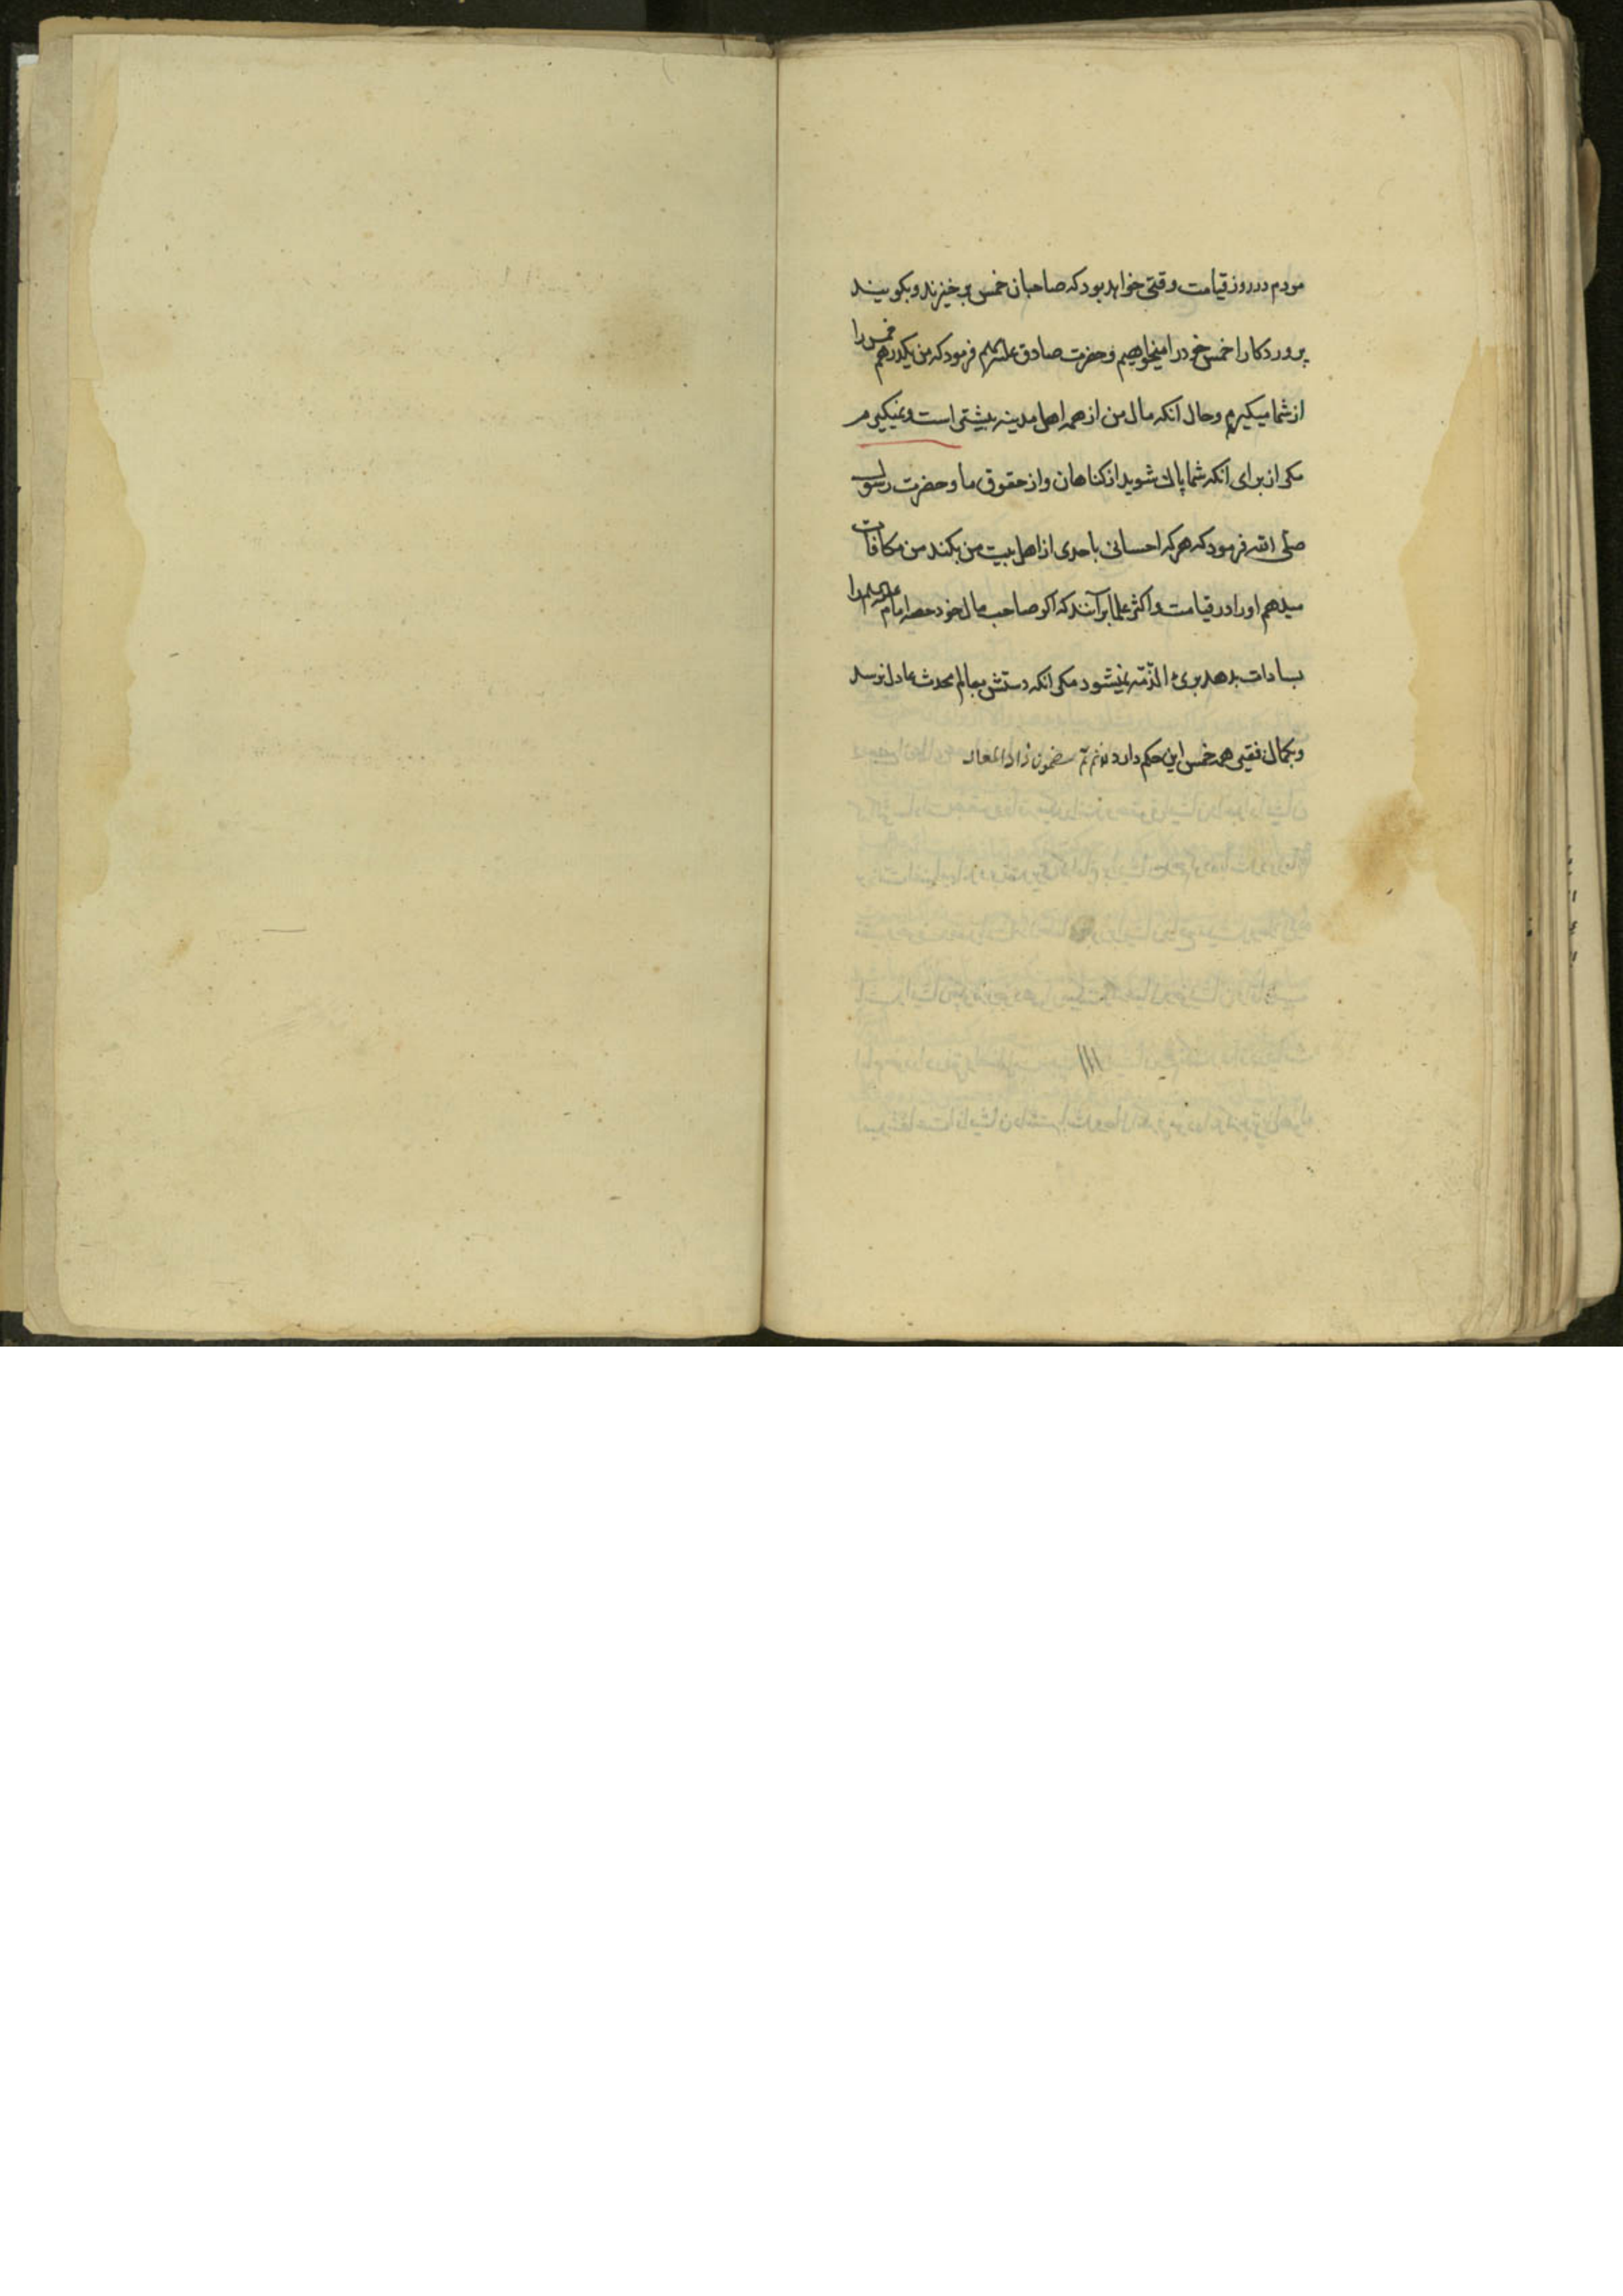 مردم در روز قیامت وقتی خواهد بود که صاحبان خمس برخیزند و بکویند
پروردکارا خمس خود را میخواهیم و حضرت صادق علیه السلم فرمود که من یکدرهم خمس را
از شما میکیرم و حال آنکه مال من از همه اهل مدینه بیشتر است و نمیکیرم
مکر از برای آنکه شما پاک شوید از کناهان و از حقوق ما و حضرت رسول
صلی الله فرمود که هر که احسانی باحدی از اهل بیت من بکند من مکافات
میدهم او را در قیامت و اکثر علما برآنند که اکر صاحب مال خود حصه امام علیه السلم را
بسادات بدهد برئ الذمه نمیشود مکر آنکه دستش بعالم محدث عادل نرسد
و بکمال فقیر همه خمس این حکم دارد تم مضمون زاد المعاد